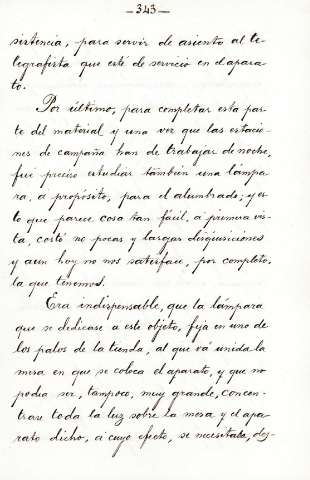 -343-
sistencia, para servir de asiento al te-
legrafista que esté de servicio en el apara-
to.
Por último, para completar esta par-
te del material y una vez que las estacio-
nes de campaña han de trabajar de noche,
fué preciso estudiar también una lámpa-
ra, á propósito, para el alumbrado; y es-
lo que parece cosa tan fácil, á primera vis-
ta, costó no pocas y largas disquisiciones
y aun hoy no nos satisface, por completo,
la que tenemos.
Era indispensable, que la lámpara
que se dedicase a este objeto, fija en uno de
los palos de la tienda, al que vá unida la
mesa en que se coloca el aparato, y que no
podia ser, tampoco, muy grande, concen-
trase toda la luz sobre la mesa y el apa-
rato dicho, a cuyo efecto, se necesitaba, des-